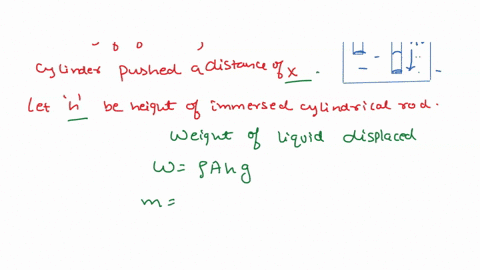 cylinder pushed a distance of x .
Let 'h' be height of immersed cylindrical rod.
Weight of liquid displaced
W = ρAhg
m =